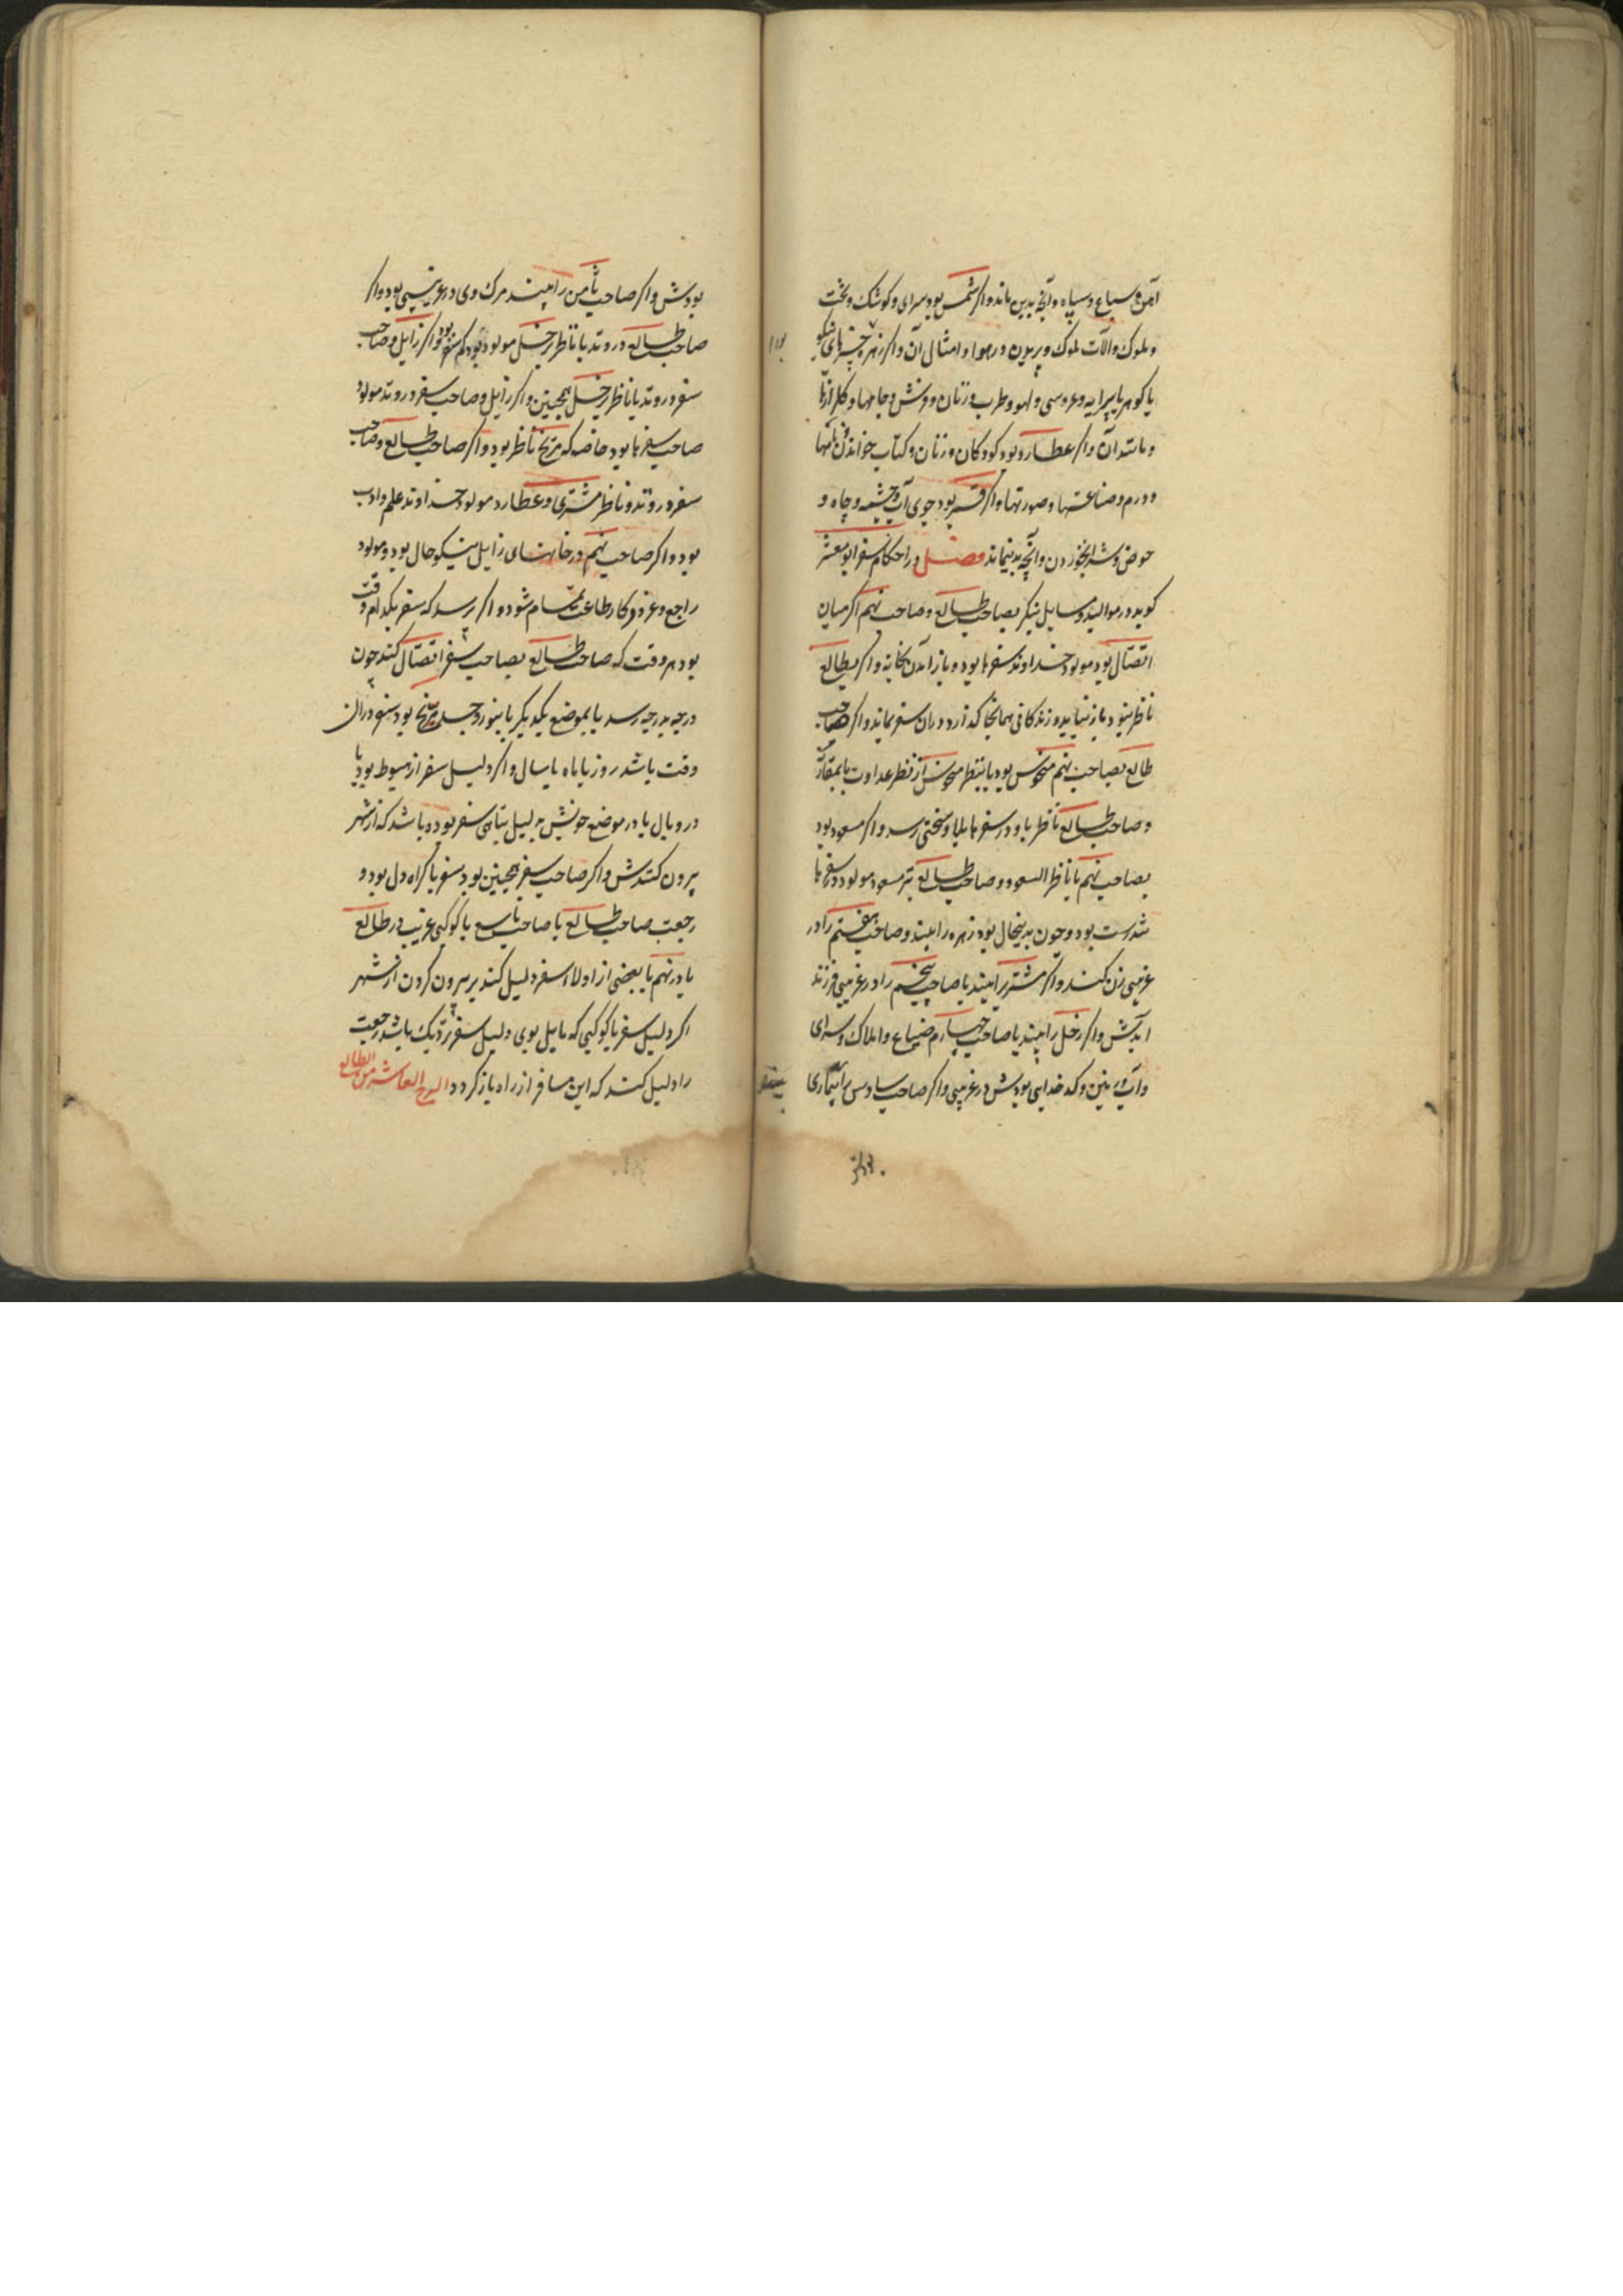 آهن و سباع و سپاه و آنچه بدین ماند و اکر شمس بود سرای و کوشک و تخت
و ملوک و آلات ملوک و پریدن در هوا و امثال آن و اکر زهره چیزهای نیکو
یا کوهر یا پیرایه و عروسی و لهو و طرب و زنان و فرش و جامها و کلزارها
و مانند آن و اکر عطارد بود کودکان و زنان و کتاب خواندن نامها
و درم و صناعتها و صورتها و اکر قمر بود جوی آب و چشمه و چاه و
حوض و شراب خوردن و آنچه بدینماند فصل در احکام سفر ابو معشر
کوید در موالید و مسایل بنکر بصاحب طالع و صاحب نهم اکر میان
اتصال بود مولود خداوند سفرها بود و باز آمدن بخانه و اکر بطالع
ناظر نبود باز نیاید و زندکانی همانجا کذارد و در آن سفر بماند و اکر صاحب
طالع بصاحب نهم منحوس بود یا بنظر منحوس از نظر عداوت یا بمقارنه
و صاحب طالع ناظر باو در سفرها بلا و سختی رسد و اکر مسعود بود
بصاحب نهم یا ناظر السعود و صاحب طالع نیز مسعود مولود در سفرها
تندرست بود و چون بدینحال بود زهره را بیند و صاحب هفتم را در
غریبی زن کند و اکر مشتری را بیند یا صاحب پنجم را در غریبی فرزند
آیدش و اکر زحل را بیند یا صاحب چهارم ضیاع و املاک و سرای
و آب و زمین و کدخدایی بودش در غریبی و اکر صاحب سادس را بیند بیماری
بودش
بودش و اکر صاحب ثامن را بیند مرک وی در غریبی بود و اکر
صاحب طالع در وتد یا ناظر زحل مولود بود کم سفر بود و اکر زایل و صاحب
سفر در وتد یا ناظر زحل همچنین و اکر زایل و صاحب سفر در وتد مولود
صاحب سفرها بود خاصه که مریخ ناظر بود و اکر صاحب طالع و صاحب
سفر در وتد و ناظر مشتری و عطارد مولود خداوند علم و ادب
بود و اکر صاحب نهم در خانهای زایل نیکو حال بود مولود
راجع و غزو و کار طاعت تمام شود و اکر پرسد که سفر بکدام وقت
بود هر وقت که صاحب طالع بصاحب سفر اتصال کند چون
درجه بدرجه رسد یا بموضع یکدیکر یا بنور و جسد مریخ بود سفر در آن
وقت باشد روز یا ماه یا سال و اکر دلیل سفر از هبوط بود یا
در وبال یا در موضع خویش دلیل تباهی سفر بود و باشد که از شهر
بیرون کنندش و اکر صاحب سفر همچنین بود سفر با کراه دل بود و
رجعت صاحب طالع یا صاحب تاسع یا کوکبی غریب در طالع
یا در نهم یا بعضی از اولاد سفر دلیل کند بر بیرون کردن از شهر
اکر دلیل سفر با کوکبی که مایل بوی دلیل سفر نزدیک باشد رجعت
را دلیل کند که این مسافر از راه باز کردد البرج العاشر من الطالع